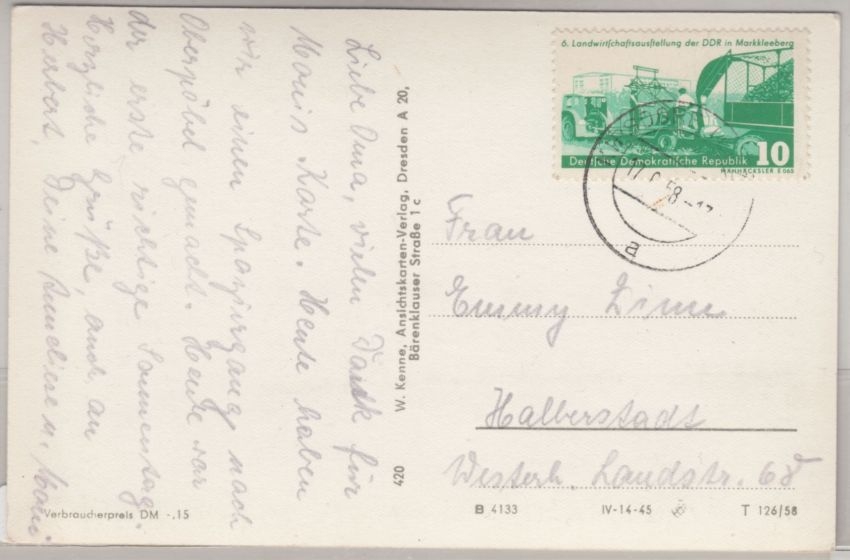 Liebe Oma, vielen Dank für
Monis Karte. Heute haben
wir einen Spaziergang nach
Oberpöbel gemacht. Heute war
der erste richtige Sonnentag.
Herzliche Grüße, auch an
Herbert, Deine Anneliese u. Moni
Verbraucherpreis DM -.15
420 W. Kenne, Ansichtskarten-Verlag, Dresden A 20,
Bärenklauser Straße 1 c
6. Landwirtschaftsausstellung der DDR in Markkleeberg
Deutsche Demokratische Republik 10
MÄHHÄCKSLER E 065
58
a
Frau
Emmy
Halberstadt
Westerh. Landstr. 68
B 4133
IV-14-45
T 126/58